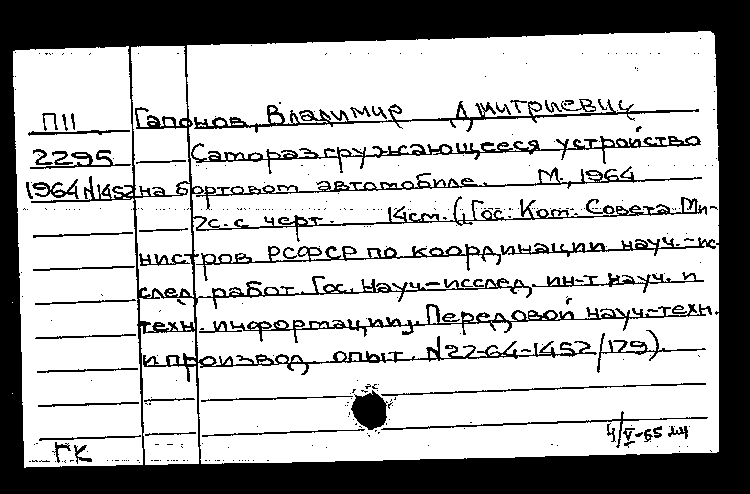 П11 Гапонов, Владимир Дмитриевич
2295 Саморазгружающееся устройство
1964 N1452 на бортовом автомобиле. М., 1964
7с. с черт. 14см. (Гос. Ком. Совета Ми-
нистров РСФСР по координации науч.-ис-
след. работ. Гос. науч-исслед. ин-т науч. и
техн. информации). Передовой науч-техн.
и производ. опыт. N22-64-1452/129).
4/V-65
ГК